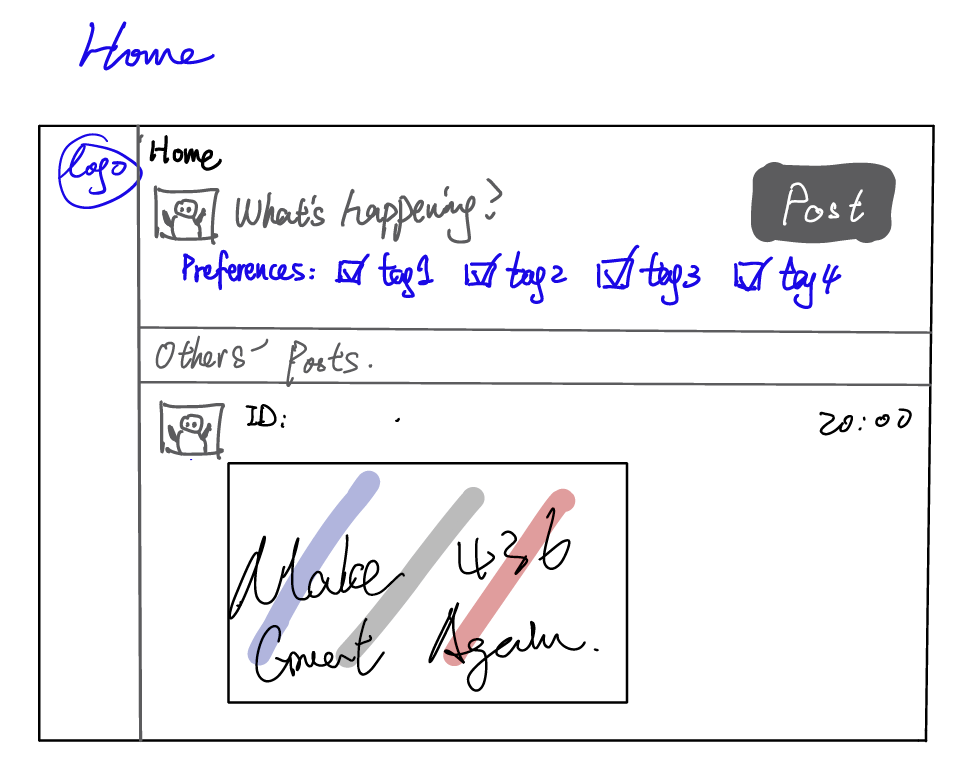 Home
logo
Home
What's happening?
Post
Preferences: tag1 tag2 tag3 tag4
Others' Posts.
ID:
20:00
Make 436
Great Again.